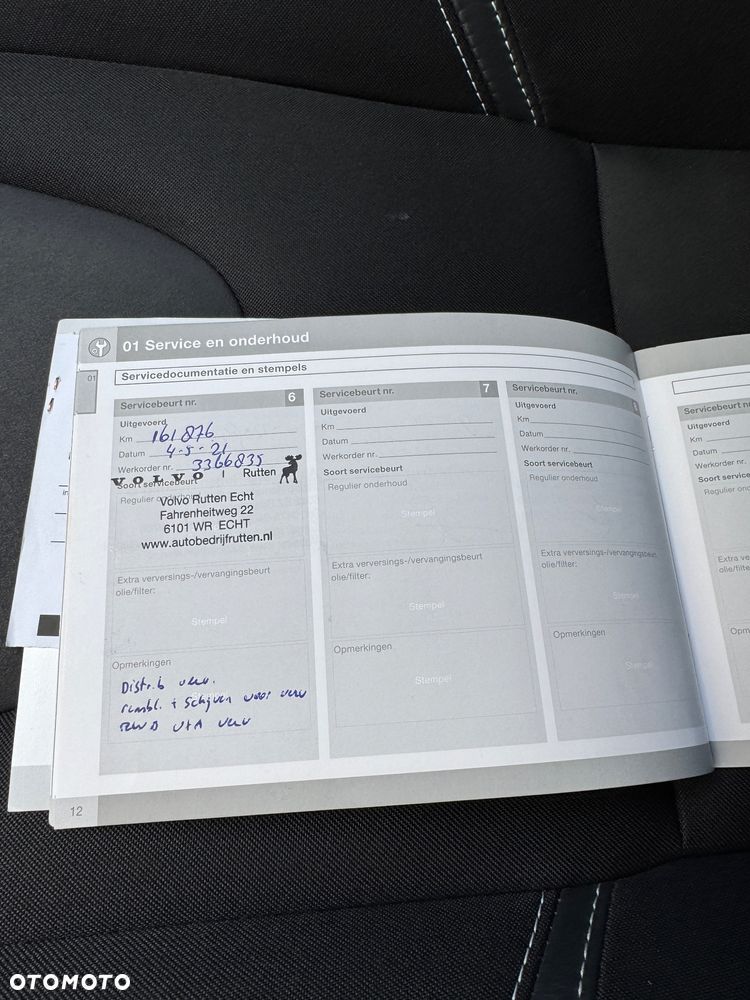 01 Service en onderhoud
01
Servicedocumentatie en stempels
Servicebeurt nr. 6
Uitgevoerd
Km 161876
Datum 4-5-21
Werkorder nr. 3366835
VOLVO | Rutten
Soort servicebeurt
Regulier onderhoud
Volvo Rutten Echt
Fahrenheitweg 22
6101 WR ECHT
www.autobedrijfrutten.nl
Extra verversings-/vervangingsbeurt
olie/filter:
Stempel
Opmerkingen
Distrib verv.
rembl. + Schijven voor verv
V+A verv
12
Servicebeurt nr. 7
Uitgevoerd
Km
Datum
Werkorder nr.
Soort servicebeurt
Regulier onderhoud
Stempel
Extra verversings-/vervangingsbeurt
olie/filter:
Stempel
Opmerkingen
Stempel
Servicebeurt nr.
Uitgevoerd
Km
Datum
Werkorder nr.
Soort servicebeurt
Regulier onderhoud
Stempel
Extra verversings-/vervangingsbeurt
olie/filter:
Stempel
Opmerkingen
Stempel
Servicebeurt nr
Uitgevoerd
Km
Datum
Werkorder nr.
Soort servicebeurt
OTOMOTO